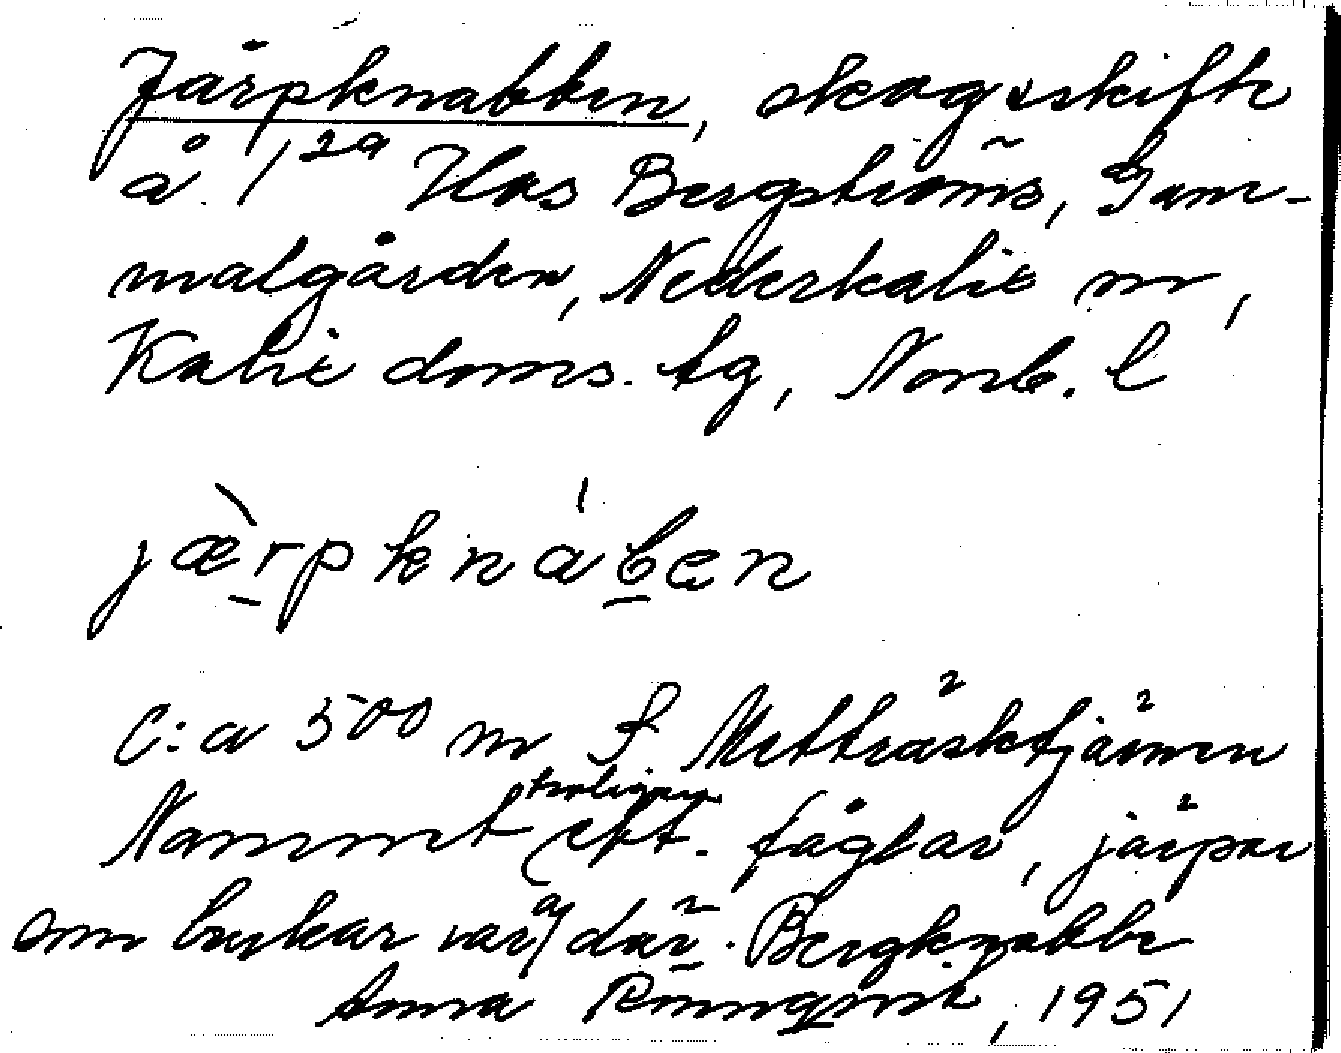 Järpknabben, skogsskifte
å 1²⁹ Hos Bergströms, Gam-
malgården, Nederkalix sn,
Kalix doms. tg, Norrb. l
jæ̀rpknáben
C:a 500 m S Metträsktjärnen
Namnet troligen eft. fåglar, järpar
som brukar vara där. Bergknabbe
Anna Rönnqvist, 1951